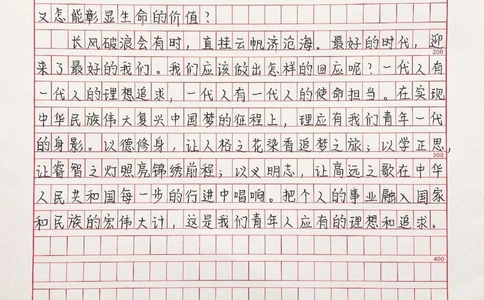 又怎能彰显生命的价值？
长风破浪会有时，直挂云帆济沧海。最好的时代，迎
200
来了最好的我们。我们应该做出怎样的回应呢？一代人有
一代人的理想追求，一代人有一代人的使命担当。在实现
中华民族伟大复兴中国梦的征程上，理应有我们青年一代
的身影。以德修身，让人格之花染看追梦之旅；以学正思，
300
让睿智之灯照亮锦绣前程；以义明志，让高远之歌在中华
人民共和国每一步的行进中唱响。把个人的事业融入国家
和民族的宏伟大计，这是我们青年人应有的理想和追求。
400